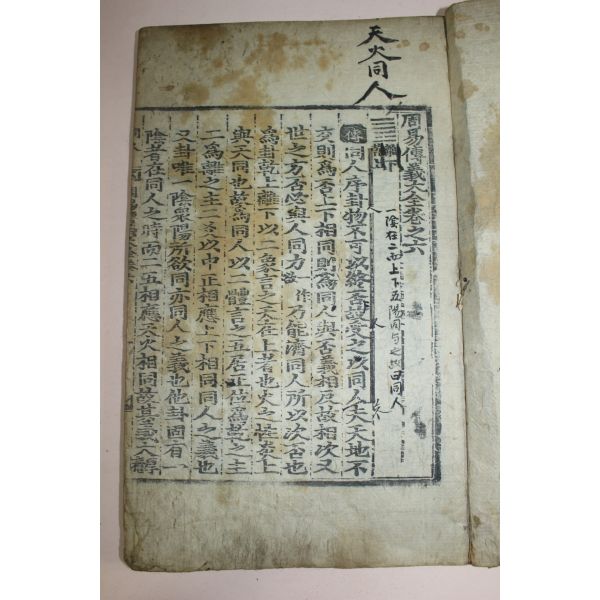 天火同人
周易傳義大全卷之六
離下
乾上
一陰在二而上下五陽同与之故曰同人
傳同人序卦物不可以終否故受之以同人夫天地不
交則爲否上下相同則爲同人與否義相反故相次又
世之方否必與人同力一作欲乃能濟同人所以次否也
爲卦乾上離下以二象言之天在上者也火之性炎上
與天同也故爲同人以二體言之五居正位爲乾之主
二爲離之主二爻以中正相應上下相同同人之義也
又卦唯一陰衆陽所欲同亦同人之義也他卦固有一
陰者在同人之時而二五相應天火相同故其義大傳